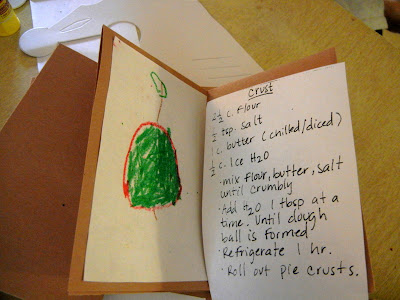 Crust
2 1/2 c. flour
1/2 tsp. salt
1 c. butter (chilled/diced)
1/2 c. Ice H2O
· mix flour, butter, salt
until crumbly
· Add H2O 1 tbsp at a
time. Until dough
ball is formed
· Refrigerate 1 hr.
· Roll out pie crusts.